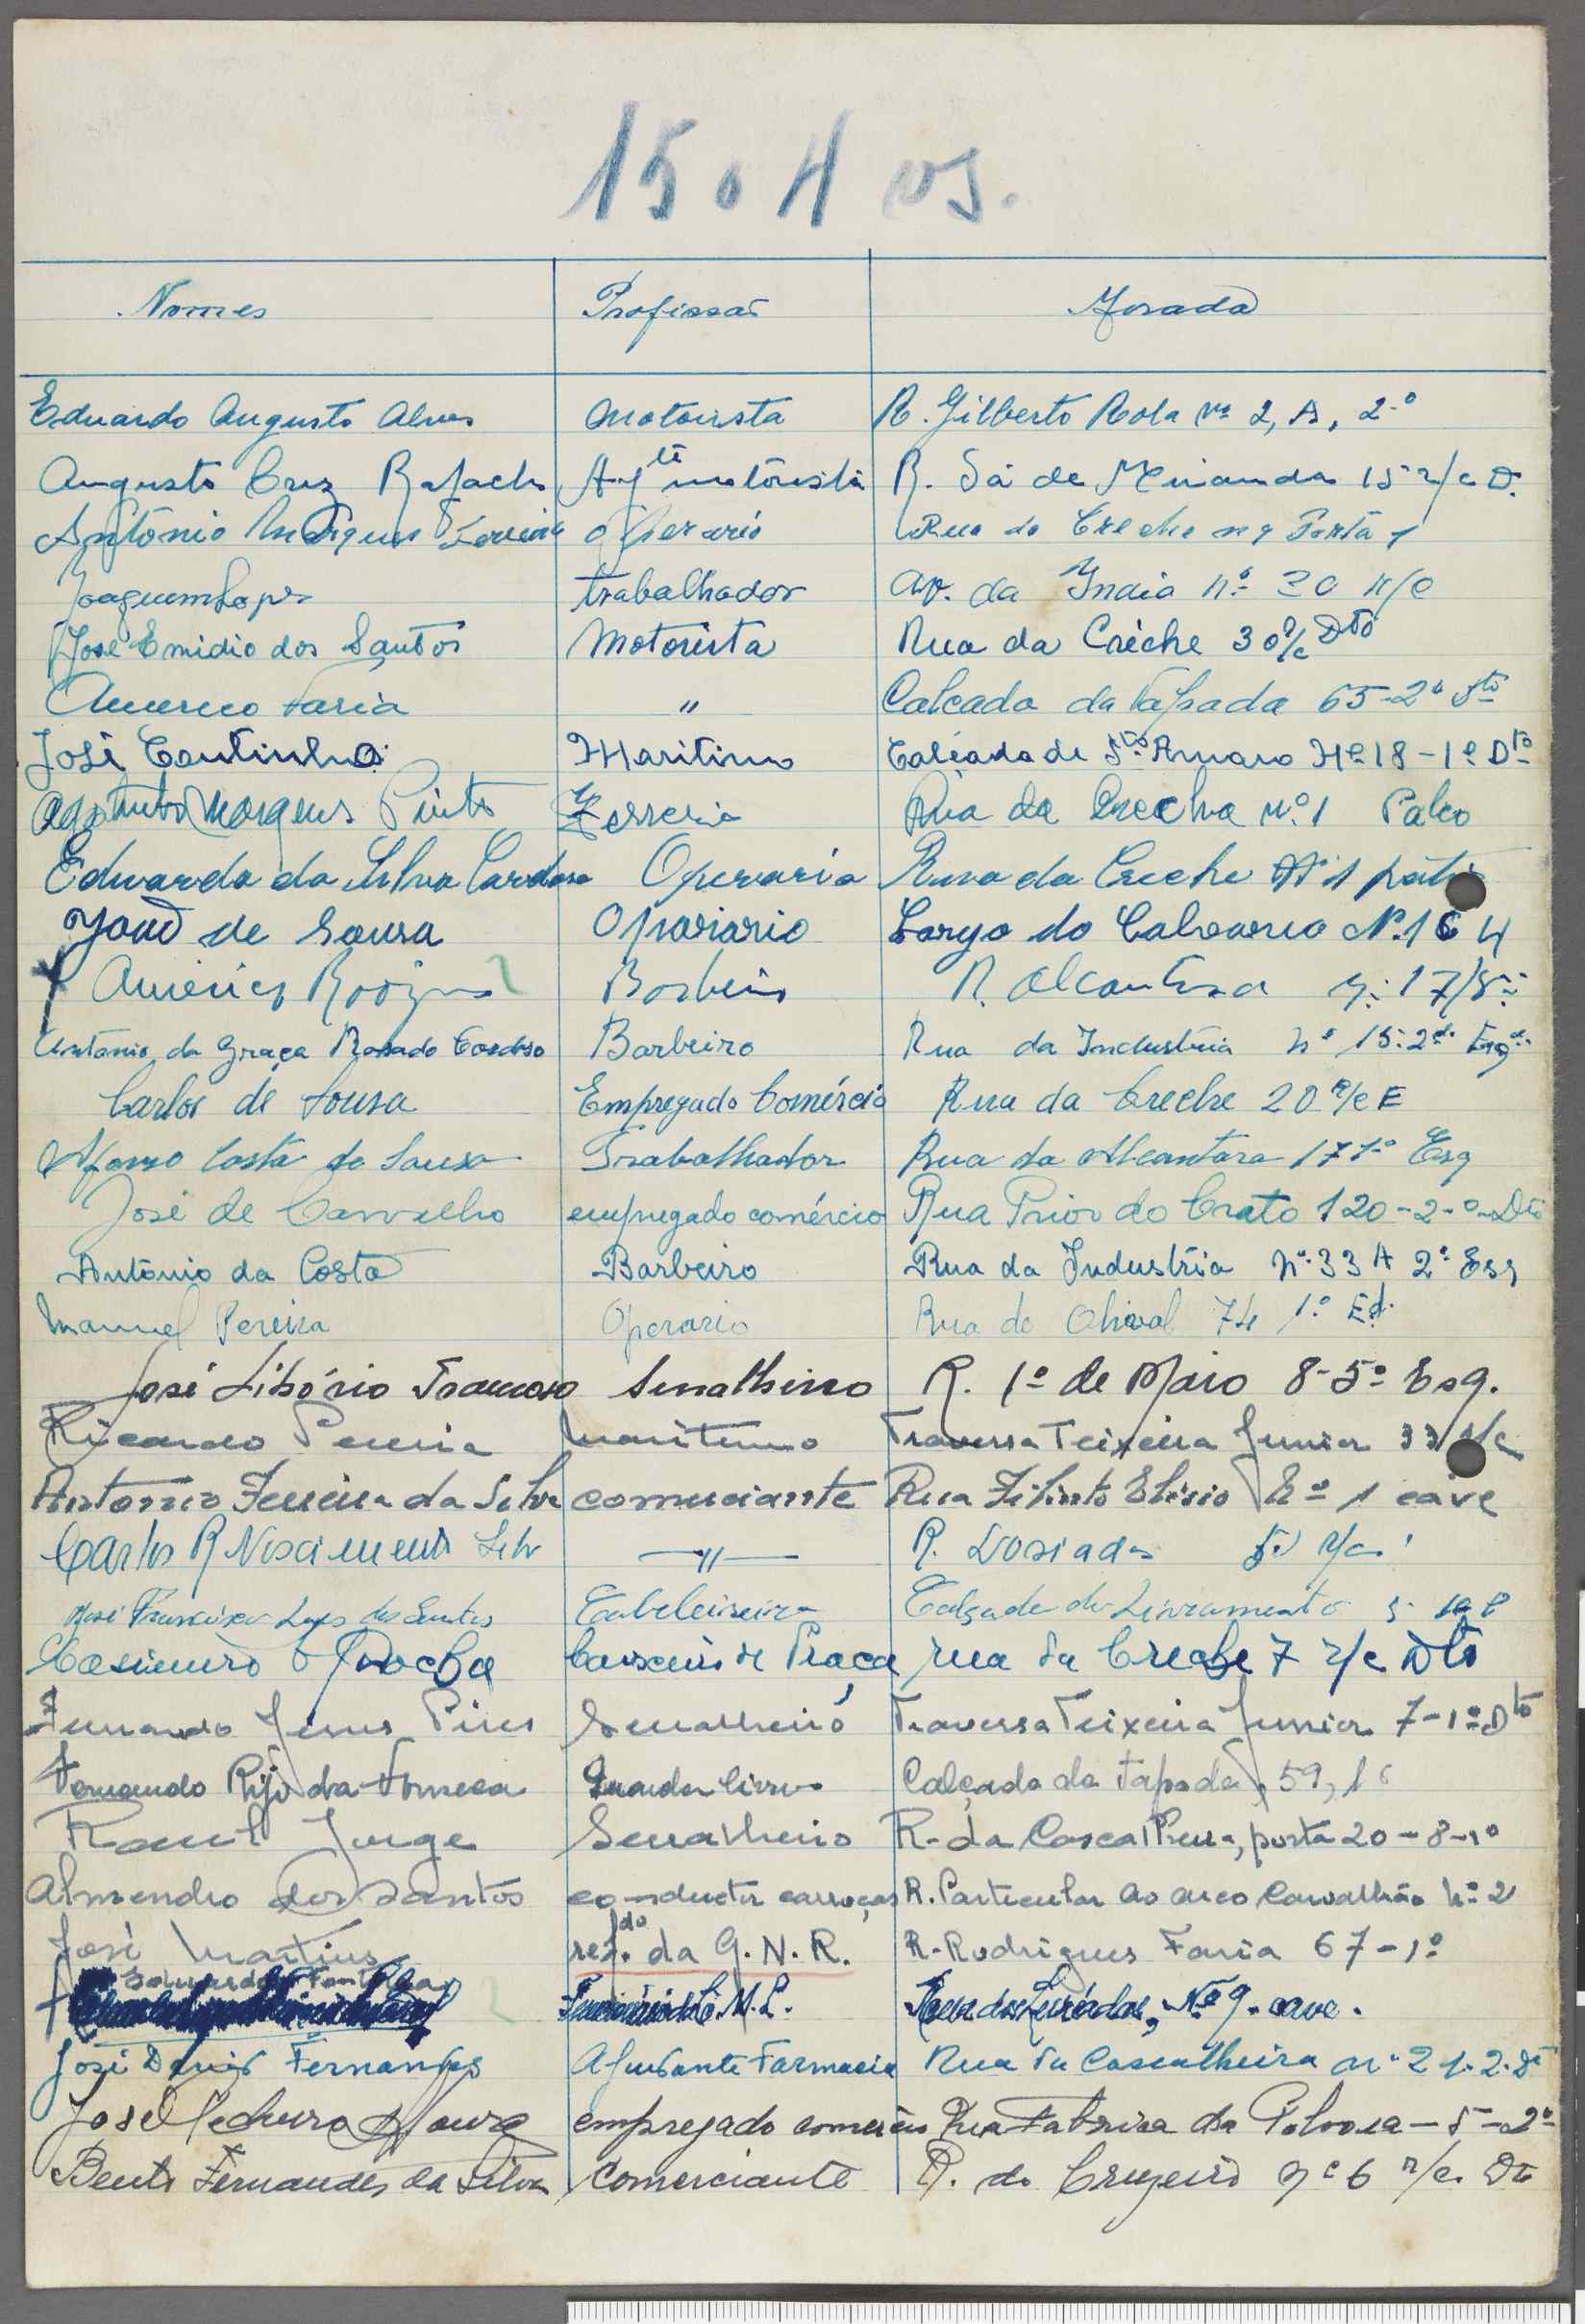 1504 vs.
Nomes Profissão Morada
Eduardo Augusto Alves Motorista R. Gilberto Rola nº 2, A, 2º
Augusto Cruz Rafael Ajte motorista R. Sá de Miranda 15 r/c D.
António Ferreira operario Rua da Creche nº 9 Porta 1
Joaquim Lopes trabalhador Av. da India nº 30 r/c
José Emidio dos Santos Motorista Rua da Créche 30 r/c Dto
Americo Faria " Calçada da Tapada 65-2º
José Coutinho Maritimo Calçada de Sto Amaro Nº 18-1º Dto
Pinto Rua da Creche nº 1 Patio
Eduarda da Silva Cardoso Operaria Rua da Creche Nº 1 pátio
de Sousa Opariario Largo do Calvario Nº 16 4
Américo Barbeiro R. Alcantara
António da Graça Rosado Cardoso Barbeiro Rua da Industria nº 15-2º Esq
Carlos de Sousa Empregado Comércio Rua da Creche 20 r/c E
Afonso Costa de Sousa Trabalhador Rua da Alcantara 17 1º Esq
José de Carvalho empregado comércio Rua Prior do Crato 120-2-º Dto
António da Costa Barbeiro Rua da Industria nº 33 A 2º Esq
Manuel Pereira Operario Rua do Olival 74 1º Ed.
José Libório Francoso Serralheiro R. 1º de Maio 8-5º Esq.
Ricardo Pereira Maritimo Travessa Teixeira Junior 33 r/c
Antonio Ferreira da Silva comerciante Rua Filinto Elisio Nº 1 cave
Carlos R Nascimento Silv —"— R. Lusiadas r/c
José Francisco Lopes dos Santos Cabeleireiro Calçada do Livramento
Casimiro Rocha Caixeiro de Praça rua da Creche 7 r/c Dto
Fernando Jesus Pires Serralheiro Travessa Teixeira Junior 7-1º Dto
Fernando Rijo da Fonseca Guarda livros Calçada da Tapada, 59, 1º
Raul Jorge Serralheiro R. da Cascalheira, porta 20-8-1º
Almendro dos Santos conductor carroças R. Particular ao arco Carvalhão Nº 2
José Martins refdo. da G.N.R. R. Rodrigues Faria 67-1º
C.M.L. Nº 9. cave.
José Diniz Fernandes Ajudante Farmacia Rua da Cascalheira nº 2 2º Dt
José empregado comercio Rua Fabrica da Polvora-5-2º
Bento Fernandes da Silva Comerciante R. do Cruzeiro nº 6 r/c. Dto